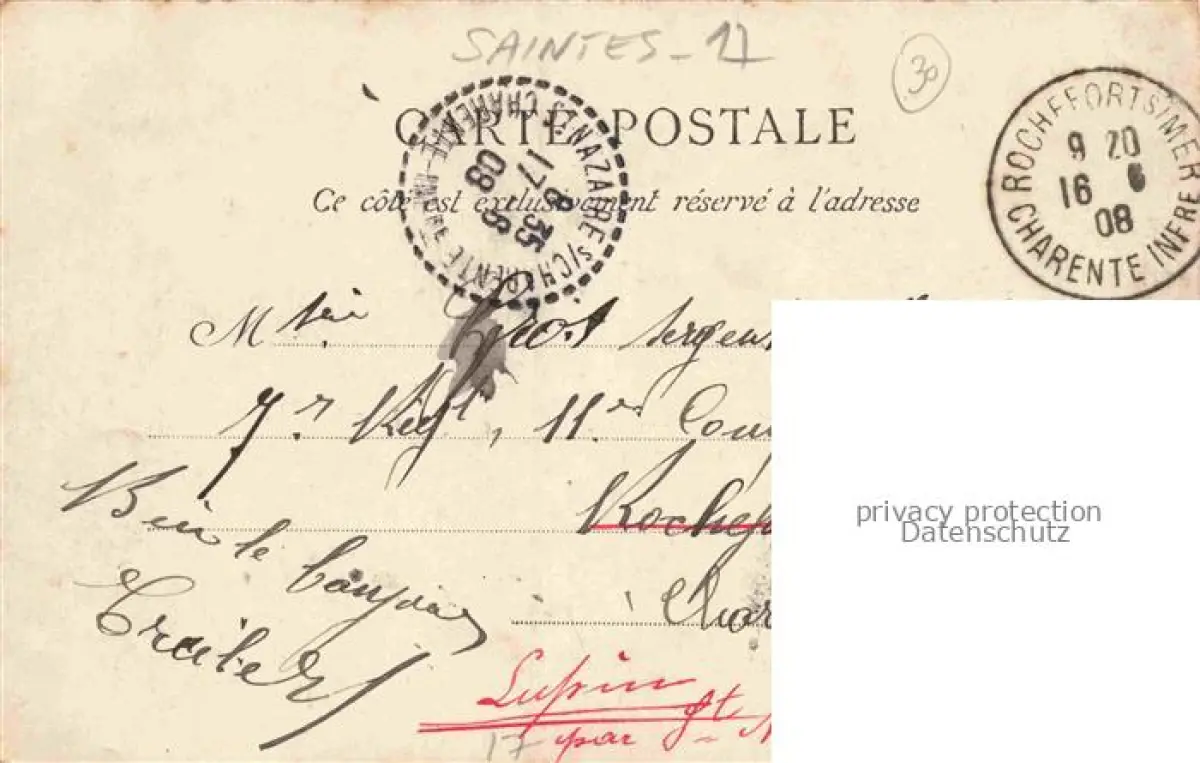 SAINTES - 17
30
CARTE POSTALE
Ce côté est exclusivement réservé à l'adresse
ST NAZAIRE S/CHARENTE
CHARENTE-INFRE
17 6 08
8 35
ROCHEFORT S/MER
9 20
16 6
08
CHARENTE INFRE
M Gros sergent
7e Regt, 11e Com
Rochef
à Char
Bien le bonjour
Lupin
par St N
17
privacy protection
Datenschutz